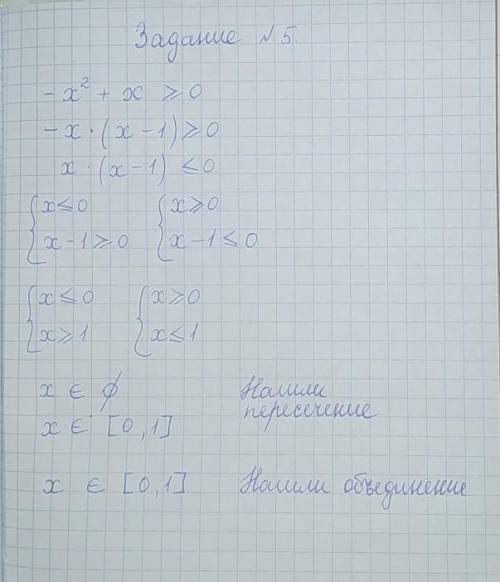 Задание №5.
-x² + x ≥ 0
-x · (x - 1) ≥ 0
x · (x - 1) ≤ 0
{ x ≤ 0 { x ≥ 0
{ x - 1 ≥ 0 { x - 1 ≤ 0
{ x ≤ 0 { x ≥ 0
{ x ≥ 1 { x ≤ 1
x ∈ ∅ Нашли
пересечение
x ∈ [0, 1]
x ∈ [0, 1] Нашли объединение